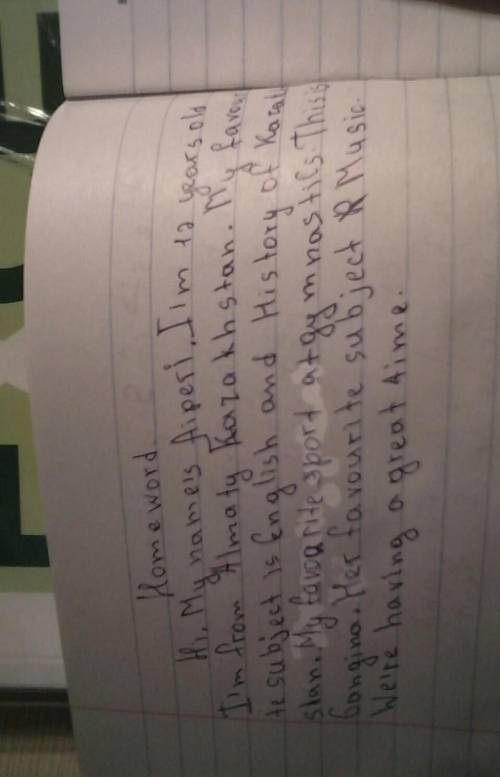 Homeword
Hi. My name's Aiperi. I'm 12 years old
I'm from Almaty Kazakhstan. My favouri
te subject is English and History of Kazak
stan. My favourite sport at gymnastics. This is
Gongina. Her favourite subject R Music.
We're having a great time.